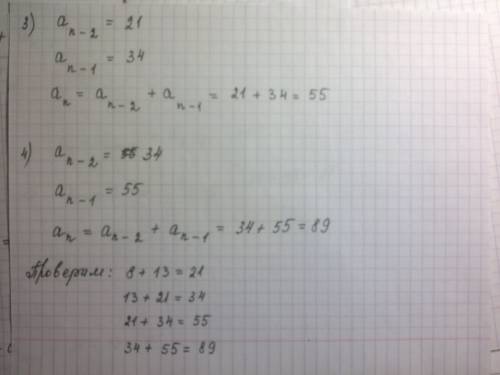 3) a n-2 = 21
a n-1 = 34
a n = a n-2 + a n-1 = 21 + 34 = 55
4) a n-2 = 34
a n-1 = 55
a n = a n-2 + a n-1 = 34 + 55 = 89
Проверим: 8 + 13 = 21
13 + 21 = 34
21 + 34 = 55
34 + 55 = 89